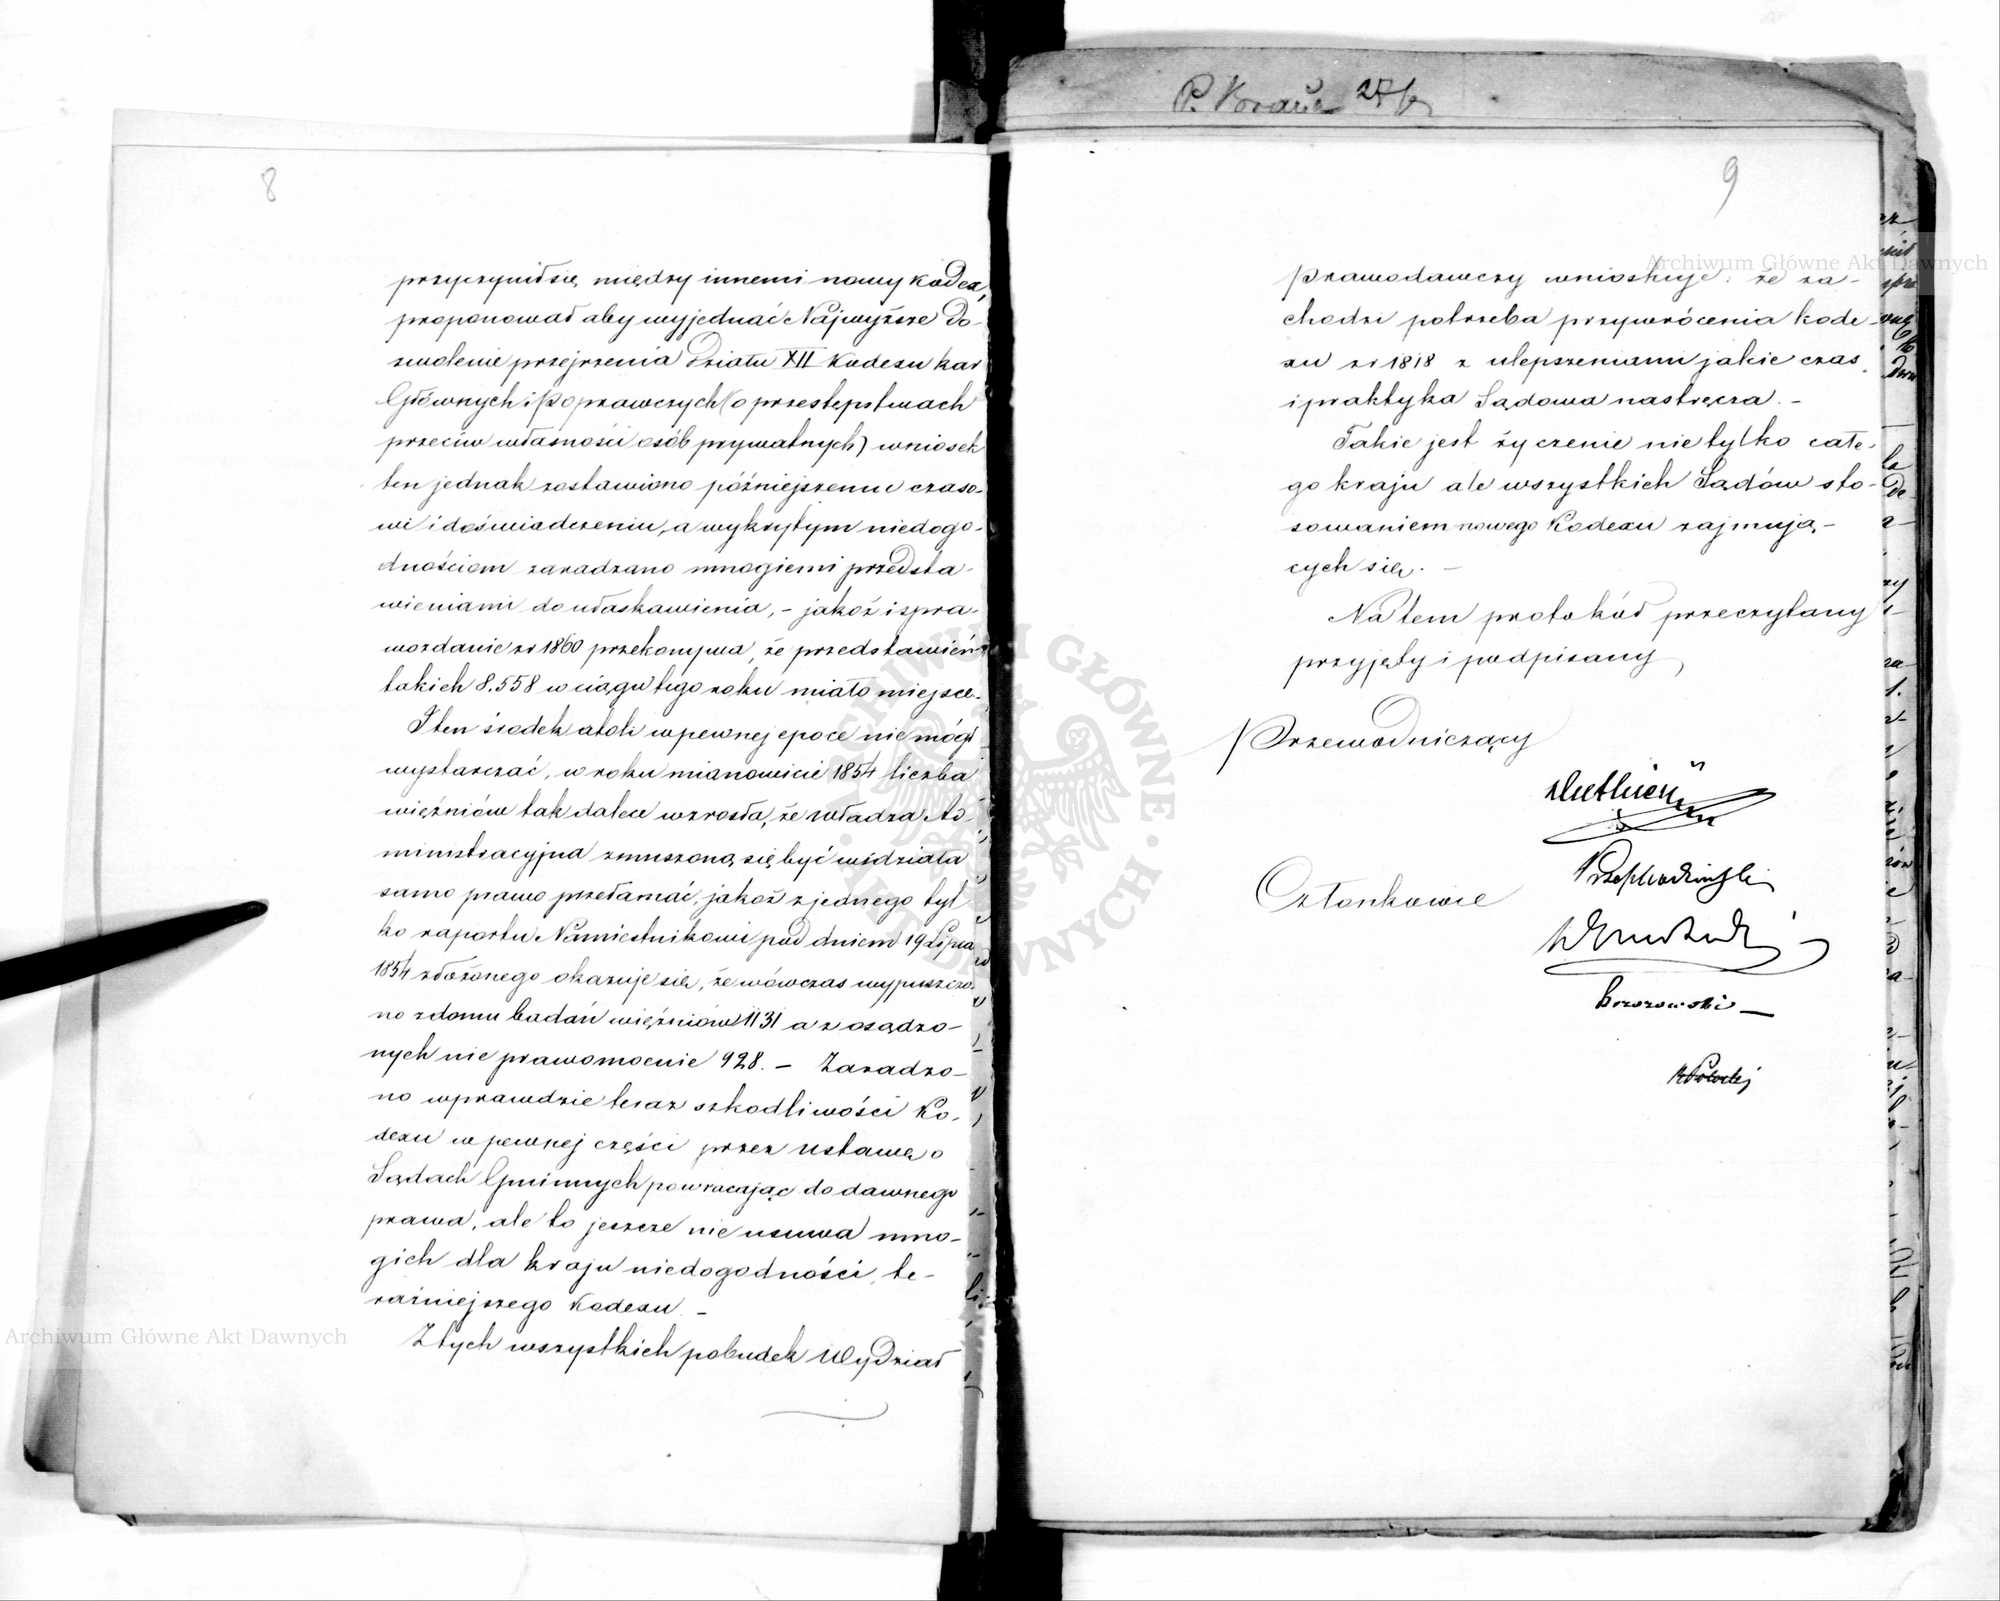 8
przyczynił się, między innemi nowy Kodex,
proponował aby wyjednać Najwyższe do-
zwolenie przejrzenia Działu XII Kodexu kar
Głównych i poprawczych (o przestępstwach
przeciw własności osób prywatnych) wniosek
ten jednak zostawiono późniejszemu czaso-
wi i doświadczeniu, a wykrytym niedogo-
dnościom zaradzano mnogiemi przedsta-
wieniami do ułaskawienia, – jakoż i spra-
wozdanie zr 1860 przekonywa, że przedstawień
takich 8.558 w ciągu tego roku miało miejsce.
I ten środek atoli w pewnej epoce nie mógł
wystarczać, w roku mianowicie 1854 liczba
więźniów tak dalece wzrosła, że władza Ad-
ministracyjna zmuszoną się być widziała
samo prawo przełamać, jakoż z jednego tyl
ko raportu Namiestnikowi pod dniem 19 Lipca
1854 złożonego okazuje się, że wówczas wypuszczo-
no z domu badań więźniów 1131 a z osądzo-
nych nie prawomocnie 928. – Zaradzo-
no wprawdzie teraz szkodliwości Ko-
dexu w pewnej części przez ustawę o
Sądach Gminnych powracając do dawnego
prawa, ale to jeszcze nie usuwa mno-
gich dla kraju niedogodności, te-
raźniejszego Kodexu. –
Z tych wszystkich pobudek Wydział
P. 27/
9
Prawodawczy wnioskuje: że za-
chodzi potrzeba przywrócenia kode-
xu zr 1818 z ulepszeniami jakie czas
i praktyka Sądowa nastręcza. –
Takie jest życzenie nie tylko całe-
go kraju ale wszystkich Sądów sto-
sowaniem nowego Kodexu zajmują-
cych się. –
Na tem protokół przeczytany
przyjęty i podpisany,
Przewodniczący
Członkowie
Brzozowski
Archiwum Główne Akt Dawnych
Archiwum Główne Akt Dawnych
ARCHIWUM GŁÓWNE AKT DAWNYCH